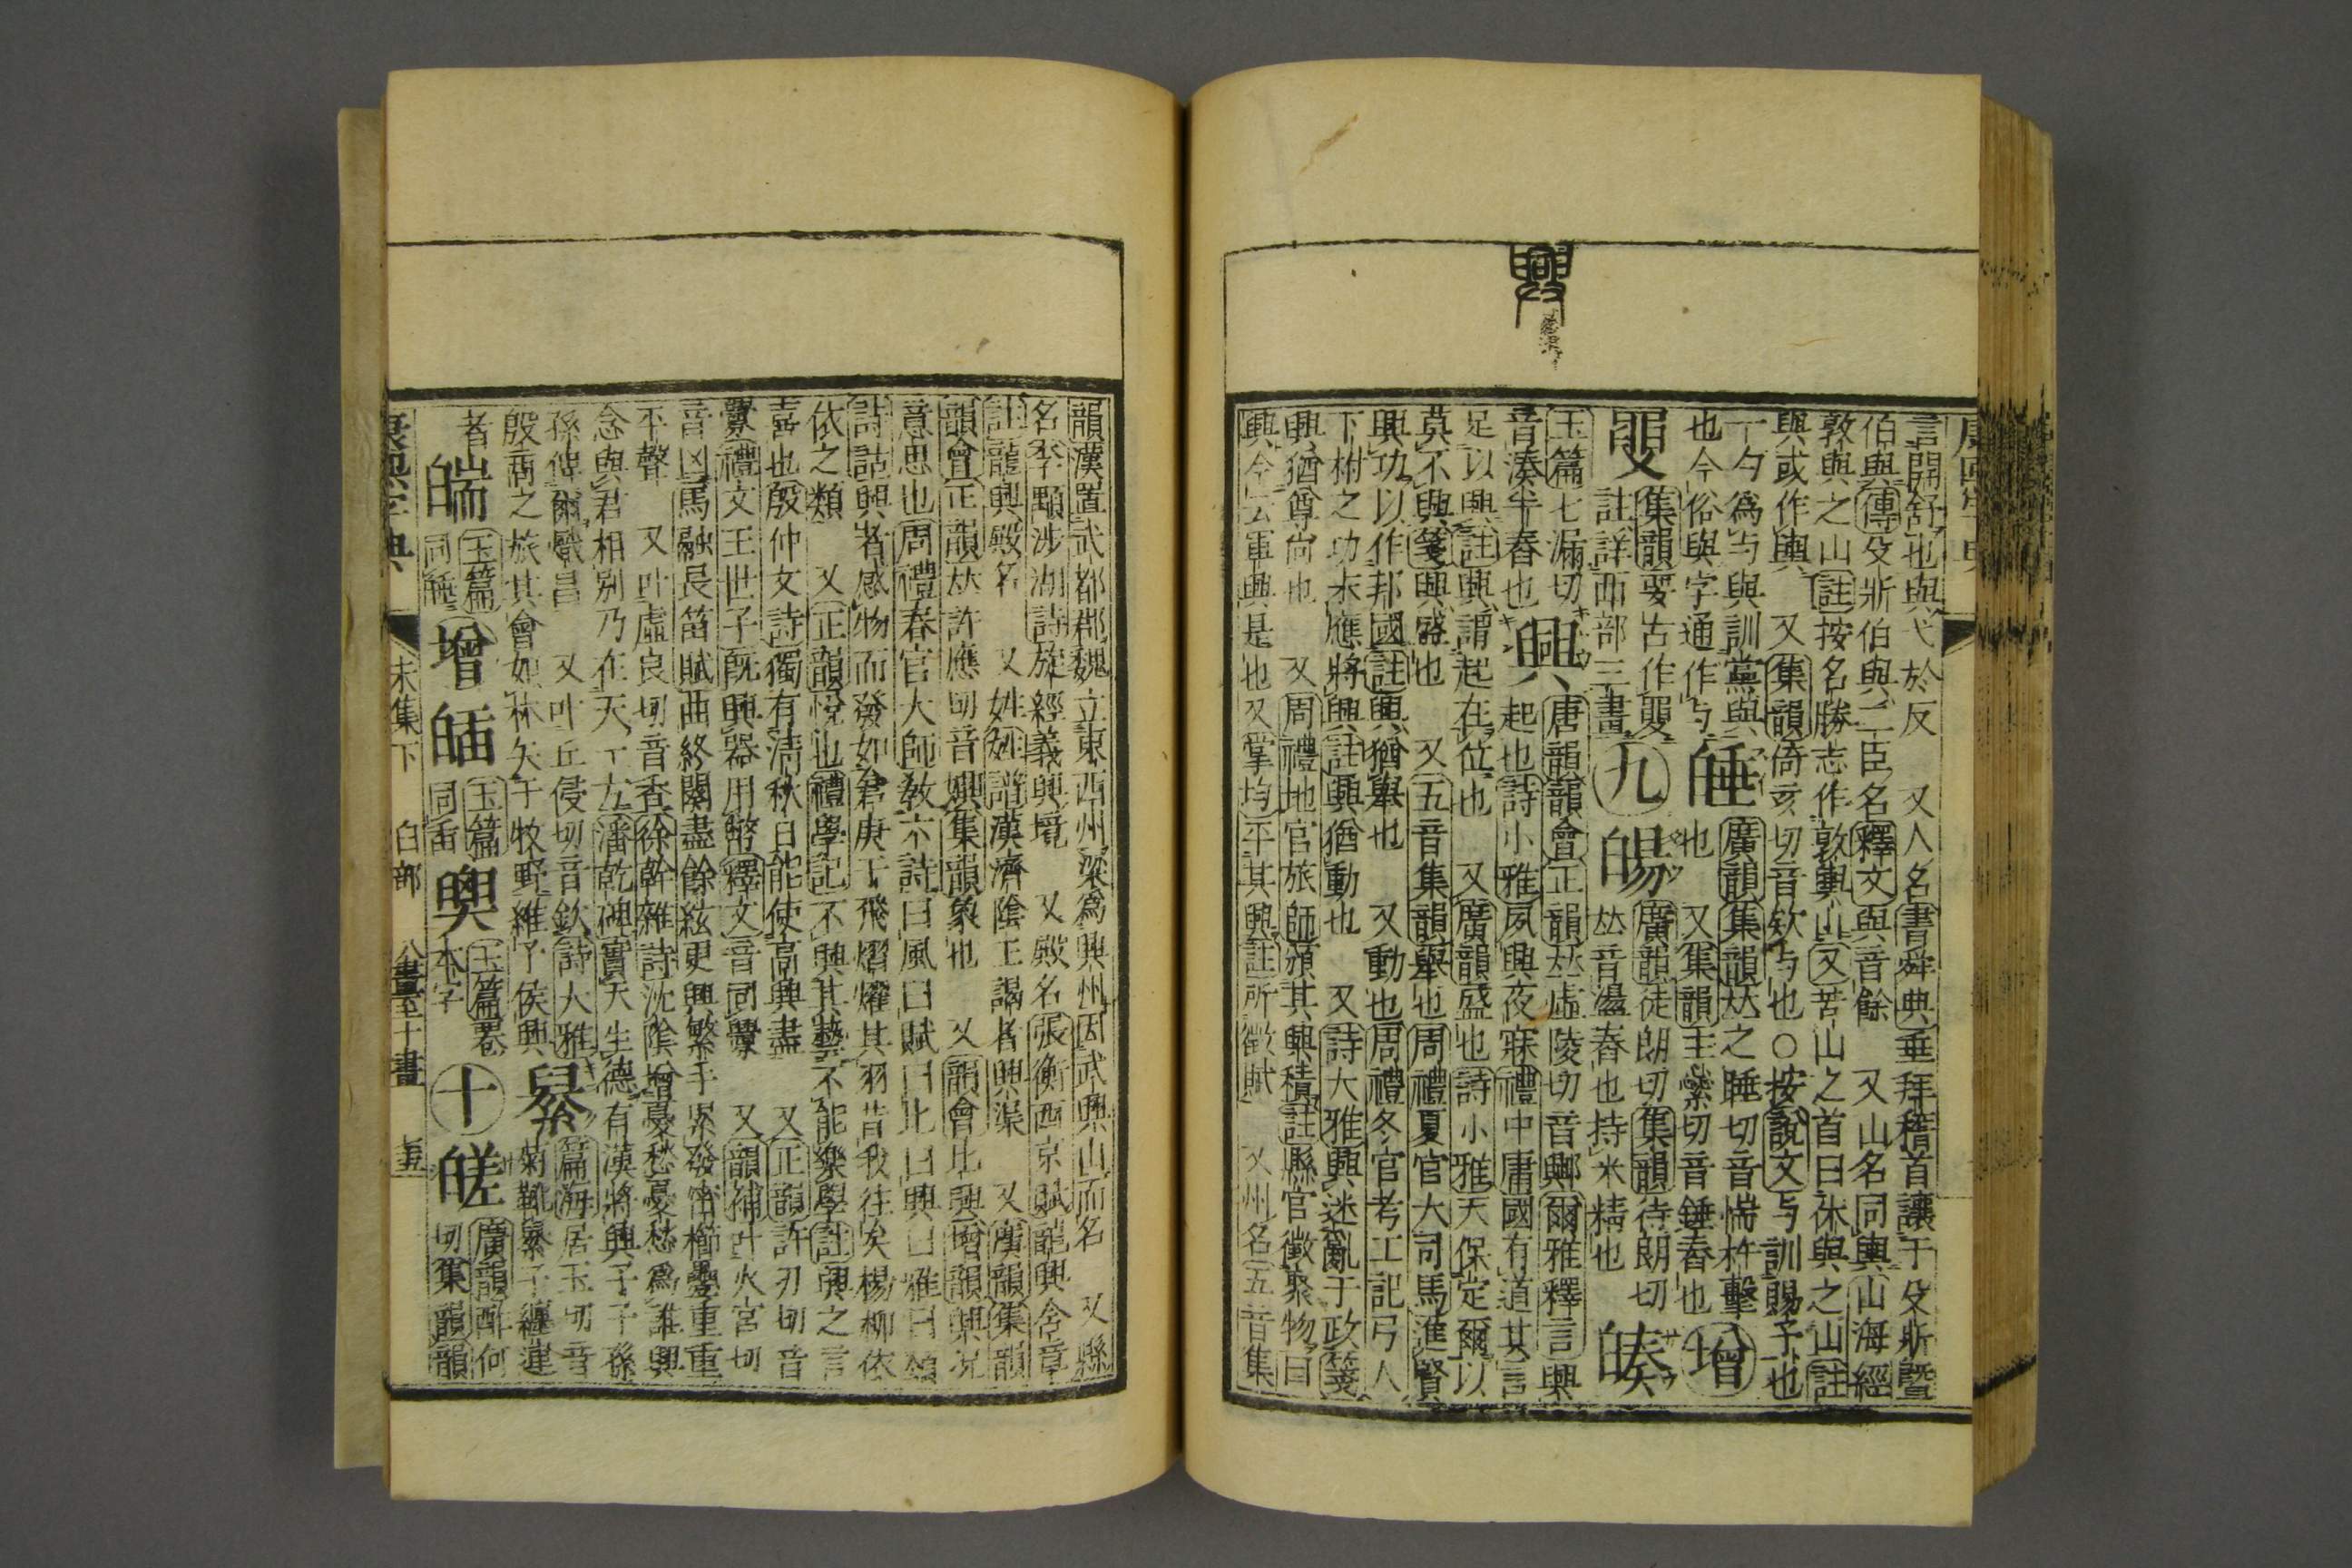 興
言閒舒也與弋於反 又人名書舜典垂拜稽首讓于殳斨暨
伯與傳殳斨伯與二臣名釋文與音餘 又山名同輿山海經
敦與之山註按名勝志作敦輿山又苦山之首曰休與之山註
與或作輿 又集韻倚亥切音欸与也○按說文与訓賜予也
一勺爲与與訓黨與
也今俗與字通作与
䑔
廣韻集韻𠀤之睡切音惴杵擊
也 又集韻主縈切音錘舂也
增
集韻要古作
註詳襾部三畫
九
廣韻徒朗切集韻待朗切
𠀤音盪舂也持米精也
玉篇七漏切
音湊半舂也
興
唐韻韻會正韻𠀤虛陵切音鄉爾雅釋言興
起也詩小雅夙興夜寐禮中庸國有道其言
足以興註興謂起在位也 又廣韻盛也詩小雅天保定爾以
莫不興箋興盛也 又五音集韻舉也周禮夏官大司馬進賢
興功以作邦國註興猶舉也 又動也周禮冬官考工記弓人
下柎之功末應將興註興猶動也 又詩大雅興迷亂于政箋
興猶尊尚也 又周禮地官旅師頒其興積註縣官徵聚物曰
興今云軍興是也又掌均平其興註所徵賦 又州名五音集
韻漢置武都郡魏立東西州梁爲興州因武興山而名 又縣
名李顒涉湖詩旋經義興境 又殿名張衡西京賦龍興含章
註龍興殿名 又姓姓譜漢濟陰王謁者興渠 又廣韻集韻
韻會正韻𠀤許應切音嬹集韻象也 又韻會比興增韻興況
意思也周禮春官大師敎六詩曰風曰賦曰比曰興曰雅曰頌
詩詁興者感物而發如倉庚于飛熠燿其羽昔我往矣楊柳依
依之類 又正韻悅也禮學記不興其藝不能樂學註興之言
喜也殷仲文詩獨有淸秋日能使高興盡 又正韻許刃切音
釁禮文王世子旣興器用幣釋文音同釁 又韻補叶火宮切
音凶馬融長笛賦曲終闋盡餘絃更興繁手累發密櫛疊重重
平聲 又叶虛良切音香徐幹雜詩沈陰增憂愁憂愁爲誰興
念與君相別乃在天一方潘乾碑實天生德有漢將興子子孫
孫俾爾熾昌 又叶丘侵切音欽詩大雅
殷商之旅其會如林矢于牧野維予侯興
篇海居玉切音
菊𩎟𦆯子纏連
者
玉篇
同䑔
增
玉篇
同臿
玉篇畧
本字
十
廣韻酢何
切集韻韻
康熙字典 未集下 臼部 八畫至十畫